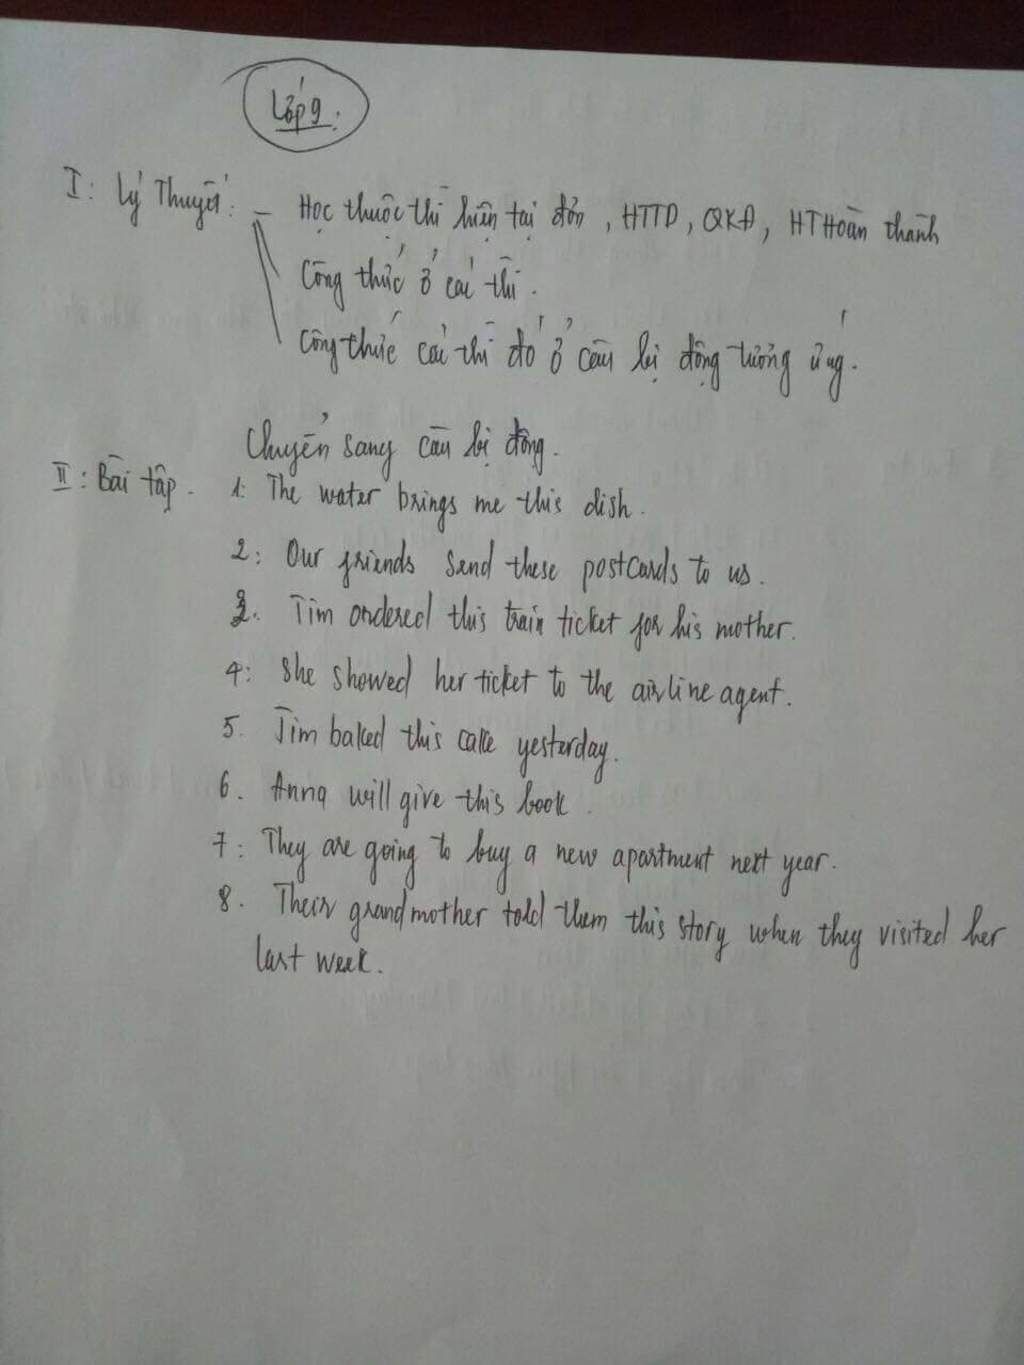 Lớp 9.
I: Lý Thuyết: - Học thuộc thì hiện tại đơn, HTTD, QKĐ, HTHoàn thành
Công thức ở các thì.
Công thức các thì đó ở câu bị động tương ứng.
Chuyển sang câu bị động.
II: Bài tập. 1: The water brings me this dish.
2: Our friends send these postcards to us.
3. Tim ordered this train ticket for his mother.
4: She showed her ticket to the airline agent.
5. Jim baked this cake yesterday.
6. Anna will give this book.
7: They are going to buy a new apartment next year.
8. Their grandmother told them this story when they visited her
last week.